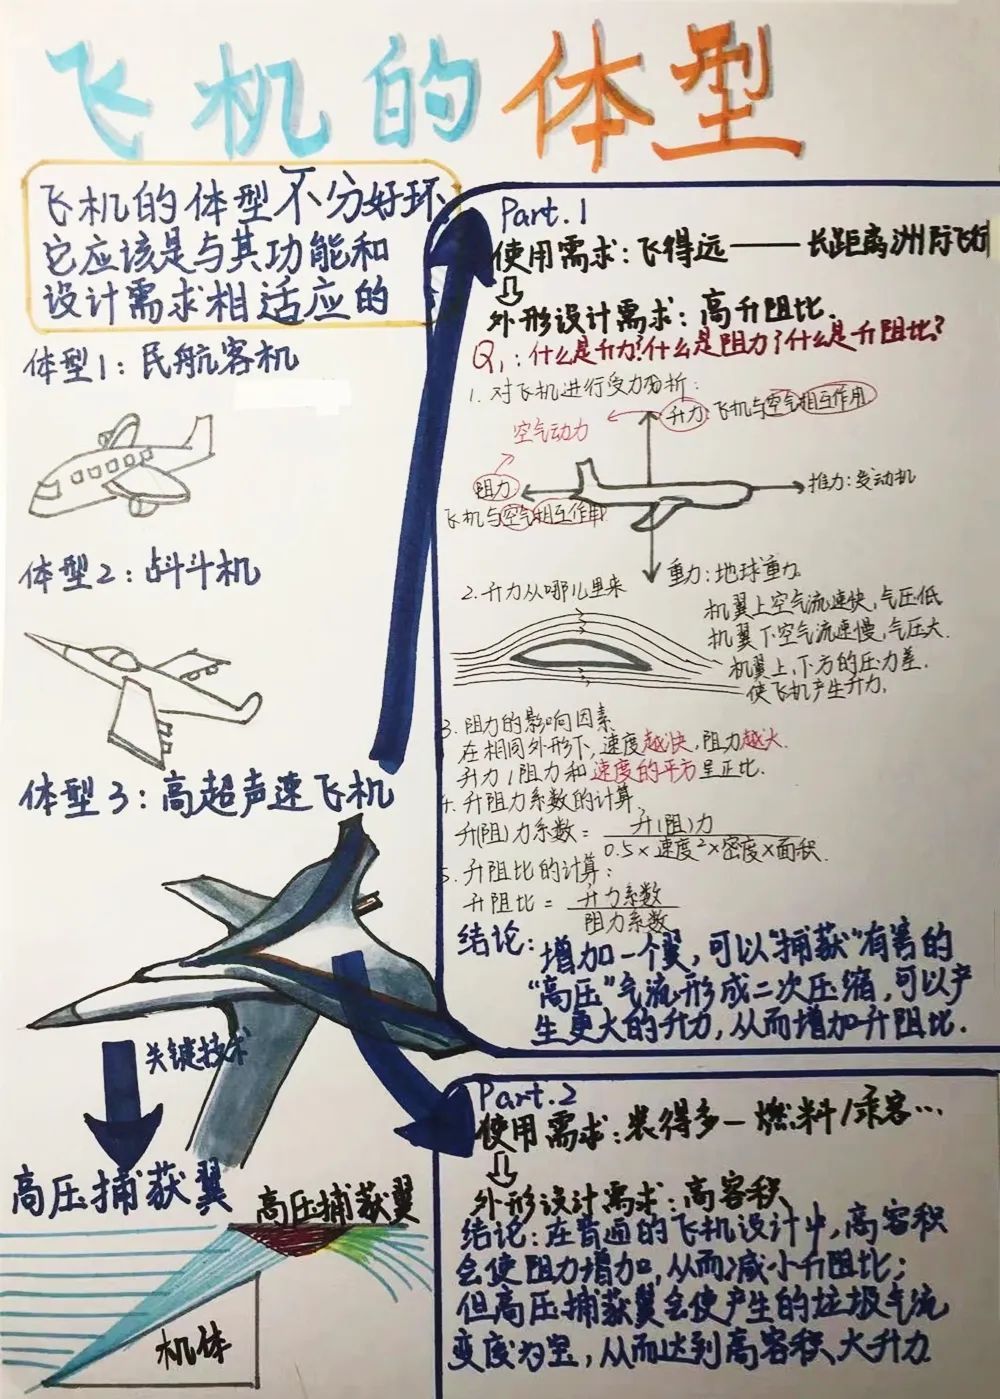 飞机的体型
飞机的体型不分好环
它应该是与其功能和
设计需求相适应的
体型1：民航客机
体型2：战斗机
体型3：高超声速飞机
关键技术
高压捕获翼
高压捕获翼
机体
Part.1
使用需求：飞得远——长距离洲际飞行
外形设计需求：高升阻比.
Q1：什么是升力？什么是阻力？什么是升阻比？
1. 对飞机进行受力分析：
升力：飞机与空气相互作用
空气动力
阻力
飞机与空气相互作用
推力：发动机
重力：地球重力
2. 升力从哪儿里来
机翼上空气流速快，气压低
机翼下空气流速慢，气压大.
机翼上，下方的压力差.
使飞机产生升力.
3. 阻力的影响因素
在相同外形下，速度越快，阻力越大.
升力/阻力和速度的平方呈正比.
4. 升阻力系数的计算
升(阻)力系数 = 升(阻)力
0.5×速度²×密度×面积.
5. 升阻比的计算：
升阻比 = 升力系数
阻力系数
结论：增加一个翼，可以“捕获”有害的
“高压”气流形成二次压缩，可以产
生更大的升力，从而增加升阻比.
Part.2
使用需求：装得多—燃料/乘客…
外形设计需求：高容积
结论：在普通的飞机设计中，高容积
会使阻力增加，从而减小升阻比；
但高压捕获翼会使产生的垃圾气流
变废为宝，从而达到高容积、大升力